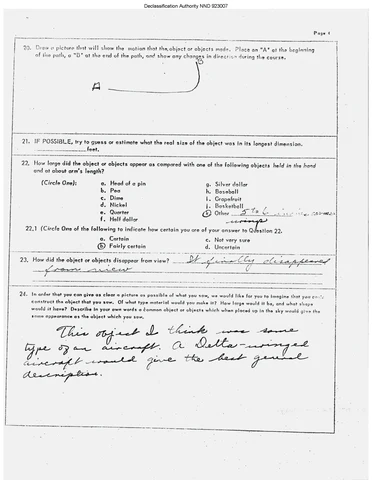 Declassification Authority NND 923007
Page 4
20. Draw a picture that will show the motion that the object or objects made. Place an "A" at the beginning
of the path, a "B" at the end of the path, and show any changes in direction during the course.
B
A
21. IF POSSIBLE, try to guess or estimate what the real size of the object was in its longest dimension.
feet.
22. How large did the object or objects appear as compared with one of the following objects held in the hand
and at about arm's length?
(Circle One): a. Head of a pin g. Silver dollar
b. Pea h. Baseball
c. Dime i. Grapefruit
d. Nickel j. Basketball
e. Quarter k. Other 5 to 6
f. Half dollar
22.1 (Circle One of the following to indicate how certain you are of your answer to Question 22.
a. Certain c. Not very sure
b. Fairly certain d. Uncertain
23. How did the object or objects disappear from view? It finally disappeared
from view
24. In order that you can give as clear a picture as possible of what you saw, we would like for you to imagine that you could
construct the object that you saw. Of what type material would you make it? How large would it be, and what shape
would it have? Describe in your own words a common object or objects which when placed up in the sky would give the
same appearance as the object which you saw.
This object I think was some
type of an aircraft. A Delta-winged
aircraft would give the best general
description.